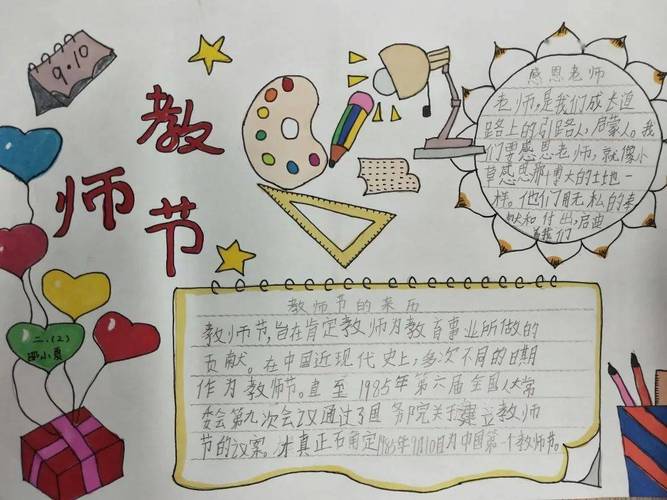 9.10
教
师
节
二.(2)
感恩老师
老师,是我们成长道
路上的引路人,启蒙人。我
们要感恩老师,就像小
草感恩那博大的土地一
样。他们用无私的奉
献和付出,启迪
着我们
教师节的来历
教师节,旨在肯定教师为教育事业所做的
贡献。在中国近现代史上,多次不同的日期
作为教师节。直至1985年第六届全国人大常
委会第九次会议通过了国务院关于建立教师
节的议案。才真正确定1985年9月10日为中国第一个教师节。